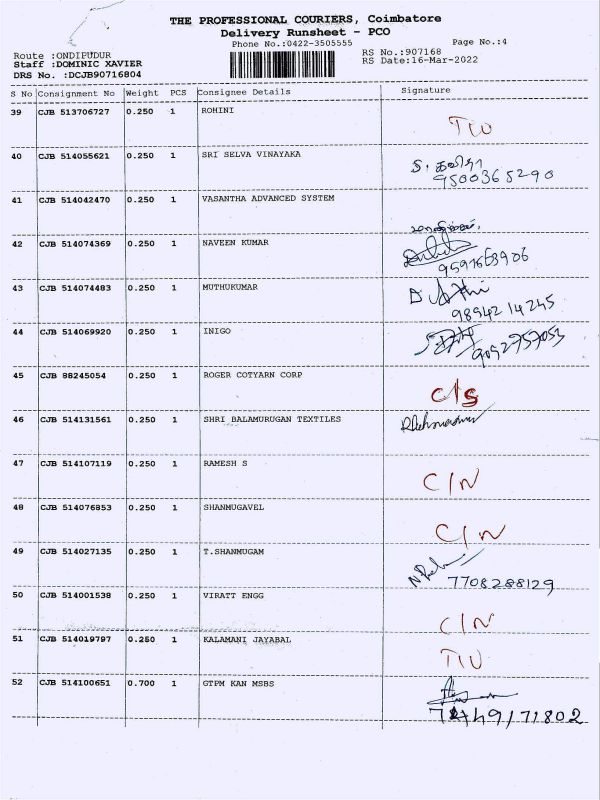 THE PROFESSIONAL COURIERS, Coimbatore
Delivery Runsheet - PCO
Phone No.:0422-3505555 Page No.:4
Route :ONDIPUDUR RS No.:907168
Staff :DOMINIC XAVIER RS Date:16-Mar-2022
DRS No. :DCJB90716804
S No Consignment No Weight PCS Consignee Details Signature
39 CJB 513706727 0.250 1 ROHINI
40 CJB 514055621 0.250 1 SRI SELVA VINAYAKA
9500365290
41 CJB 514042470 0.250 1 VASANTHA ADVANCED SYSTEM
42 CJB 514074369 0.250 1 NAVEEN KUMAR
43 CJB 514074483 0.250 1 MUTHUKUMAR
9894214245
44 CJB 514069920 0.250 1 INIGO
9092757053
45 CJB 88245054 0.250 1 ROGER COTYARN CORP
C/S
46 CJB 514131561 0.250 1 SHRI BALAMURUGAN TEXTILES
47 CJB 514107119 0.250 1 RAMESH S
C/N
48 CJB 514076853 0.250 1 SHANMUGAVEL
C/N
49 CJB 514027135 0.250 1 T.SHANMUGAM
7708288129
50 CJB 514001538 0.250 1 VIRATT ENGG
C/N
51 CJB 514019797 0.250 1 KALAMANI JAYABAL
52 CJB 514100651 0.700 1 GTPM KAN MSBS